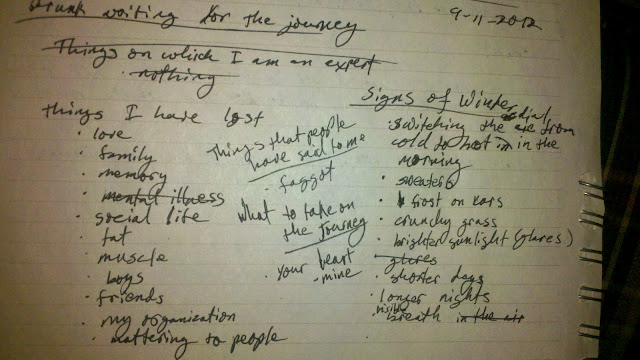 Drunk writing for the journey
9-11-2012
Things on which I am an expert
· nothing
Things I have lost
· love
· family
· memory
· mental illness
· social life
· fat
· muscle
· boys
· friends
· my organization
· mattering to people
Things that people
have said to me
· faggot
What to take on
the journey
· your heart
- mine
Signs of Winter
· switching the air dial from
cold to hot in in the
morning
· sweaters
· frost on kars
· crunchy grass
· brighter sunlight (glares)
glares
· shorter days
· longer nights
· visible breath in the air